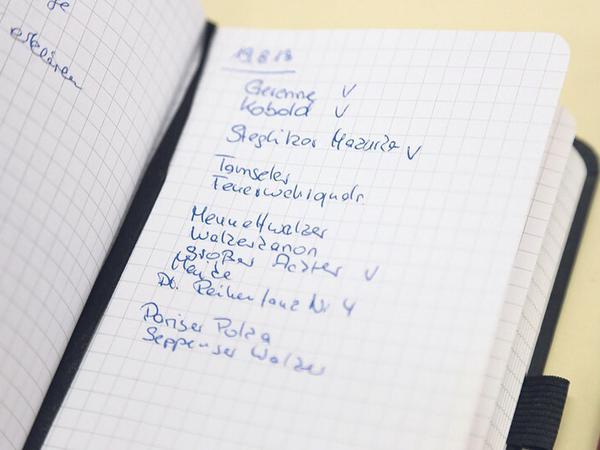 erklären
19.8.18
Gerenne V
Kobold V
Steglitzer Mazurka V
Tamseler
Feuerwehrquadr.
Menuettwalzer
Walzerkanon
Großer Achter V
Heide
Dt. Reihentanz Nr 4
Pariser Polka
Seppenser Walzer